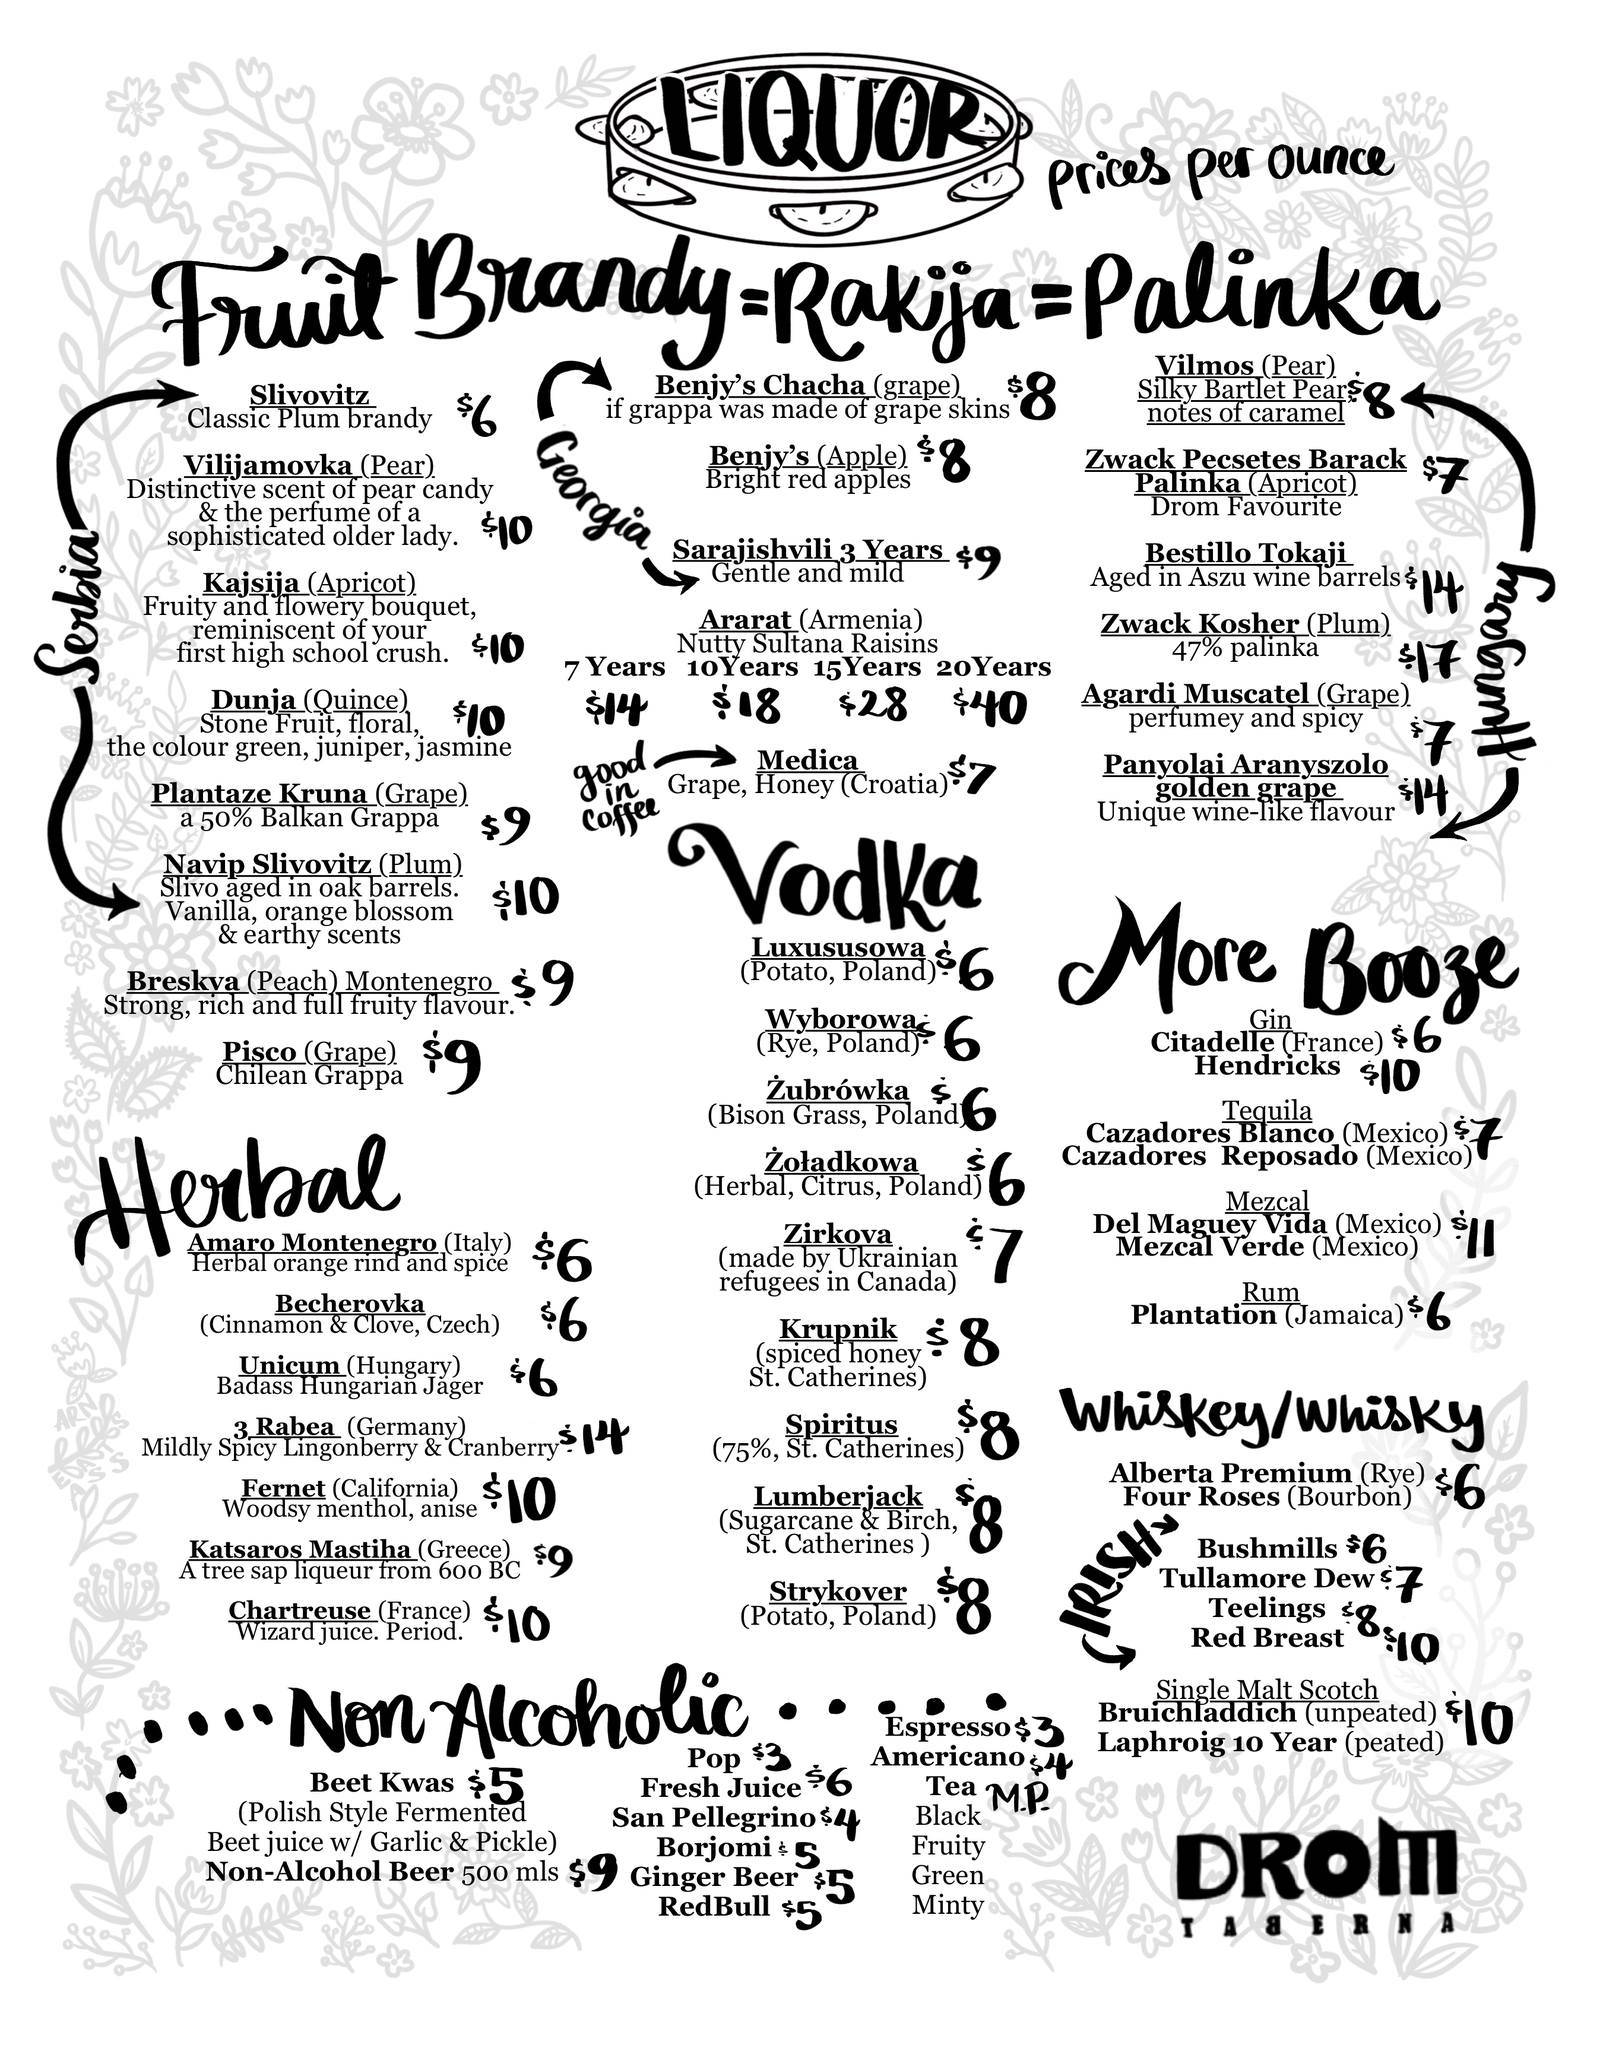 LIQUOR
prices per ounce
Fruit Brandy = Rakija = Palinka
Serbia
Slivovitz $6
Classic Plum brandy
Vilijamovka (Pear)
Distinctive scent of pear candy
& the perfume of a
sophisticated older lady. $10
Kajsija (Apricot)
Fruity and flowery bouquet,
reminiscent of your
first high school crush. $10
Dunja (Quince) $10
Stone Fruit, floral,
the colour green, juniper, jasmine
Plantaze Kruna (Grape)
a 50% Balkan Grappa $9
Navip Slivovitz (Plum)
Slivo aged in oak barrels. $10
Vanilla, orange blossom
& earthy scents
Breskva (Peach) Montenegro $9
Strong, rich and full fruity flavour.
Pisco (Grape) $9
Chilean Grappa
Georgia
Benjy's Chacha (grape) $8
if grappa was made of grape skins
Benjy's (Apple) $8
Bright red apples
Sarajishvili 3 Years $9
Gentle and mild
Ararat (Armenia)
Nutty Sultana Raisins
7 Years 10Years 15Years 20Years
$14 $18 $28 $40
good in coffee
Medica $7
Grape, Honey (Croatia)
Hungary
Vilmos (Pear)
Silky Bartlet Pear $8
notes of caramel
Zwack Pecsetes Barack $7
Palinka (Apricot)
Drom Favourite
Bestillo Tokaji
Aged in Aszu wine barrels $14
Zwack Kosher (Plum)
47% palinka $17
Agardi Muscatel (Grape)
perfumey and spicy $7
Panyolai Aranyszolo
golden grape $14
Unique wine-like flavour
Vodka
Luxususowa $6
(Potato, Poland)
Wyborowa $6
(Rye, Poland)
Żubrówka $6
(Bison Grass, Poland)
Żoładkowa $6
(Herbal, Citrus, Poland)
Zirkova $7
(made by Ukrainian
refugees in Canada)
Krupnik $8
(spiced honey
St. Catherines)
Spiritus $8
(75%, St. Catherines)
Lumberjack $8
(Sugarcane & Birch,
St. Catherines )
Strykover $8
(Potato, Poland)
More Booze
Gin
Citadelle (France) $6
Hendricks $10
Tequila
Cazadores Blanco (Mexico) $7
Cazadores Reposado (Mexico)
Mezcal
Del Maguey Vida (Mexico) $11
Mezcal Verde (Mexico)
Rum
Plantation (Jamaica) $6
Herbal
Amaro Montenegro (Italy) $6
Herbal orange rind and spice
Becherovka $6
(Cinnamon & Clove, Czech)
Unicum (Hungary) $6
Badass Hungarian Jager
3 Rabea (Germany)
Mildly Spicy Lingonberry & Cranberry $14
Fernet (California) $10
Woodsy menthol, anise
Katsaros Mastiha (Greece) $9
A tree sap liqueur from 600 BC
Chartreuse (France) $10
Wizard juice. Period.
Whiskey/Whisky
Alberta Premium (Rye) $6
Four Roses (Bourbon)
IRISH
Bushmills $6
Tullamore Dew $7
Teelings $8
Red Breast $10
Single Malt Scotch
Bruichladdich (unpeated) $10
Laphroig 10 Year (peated)
Non Alcoholic
Beet Kwas $5
(Polish Style Fermented
Beet juice w/ Garlic & Pickle)
Non-Alcohol Beer 500 mls $9
Pop $3
Fresh Juice $6
San Pellegrino $4
Borjomi $5
Ginger Beer $5
RedBull $5
Espresso $3
Americano $4
Tea M.P.
Black
Fruity
Green
Minty
DROM
TABERNA